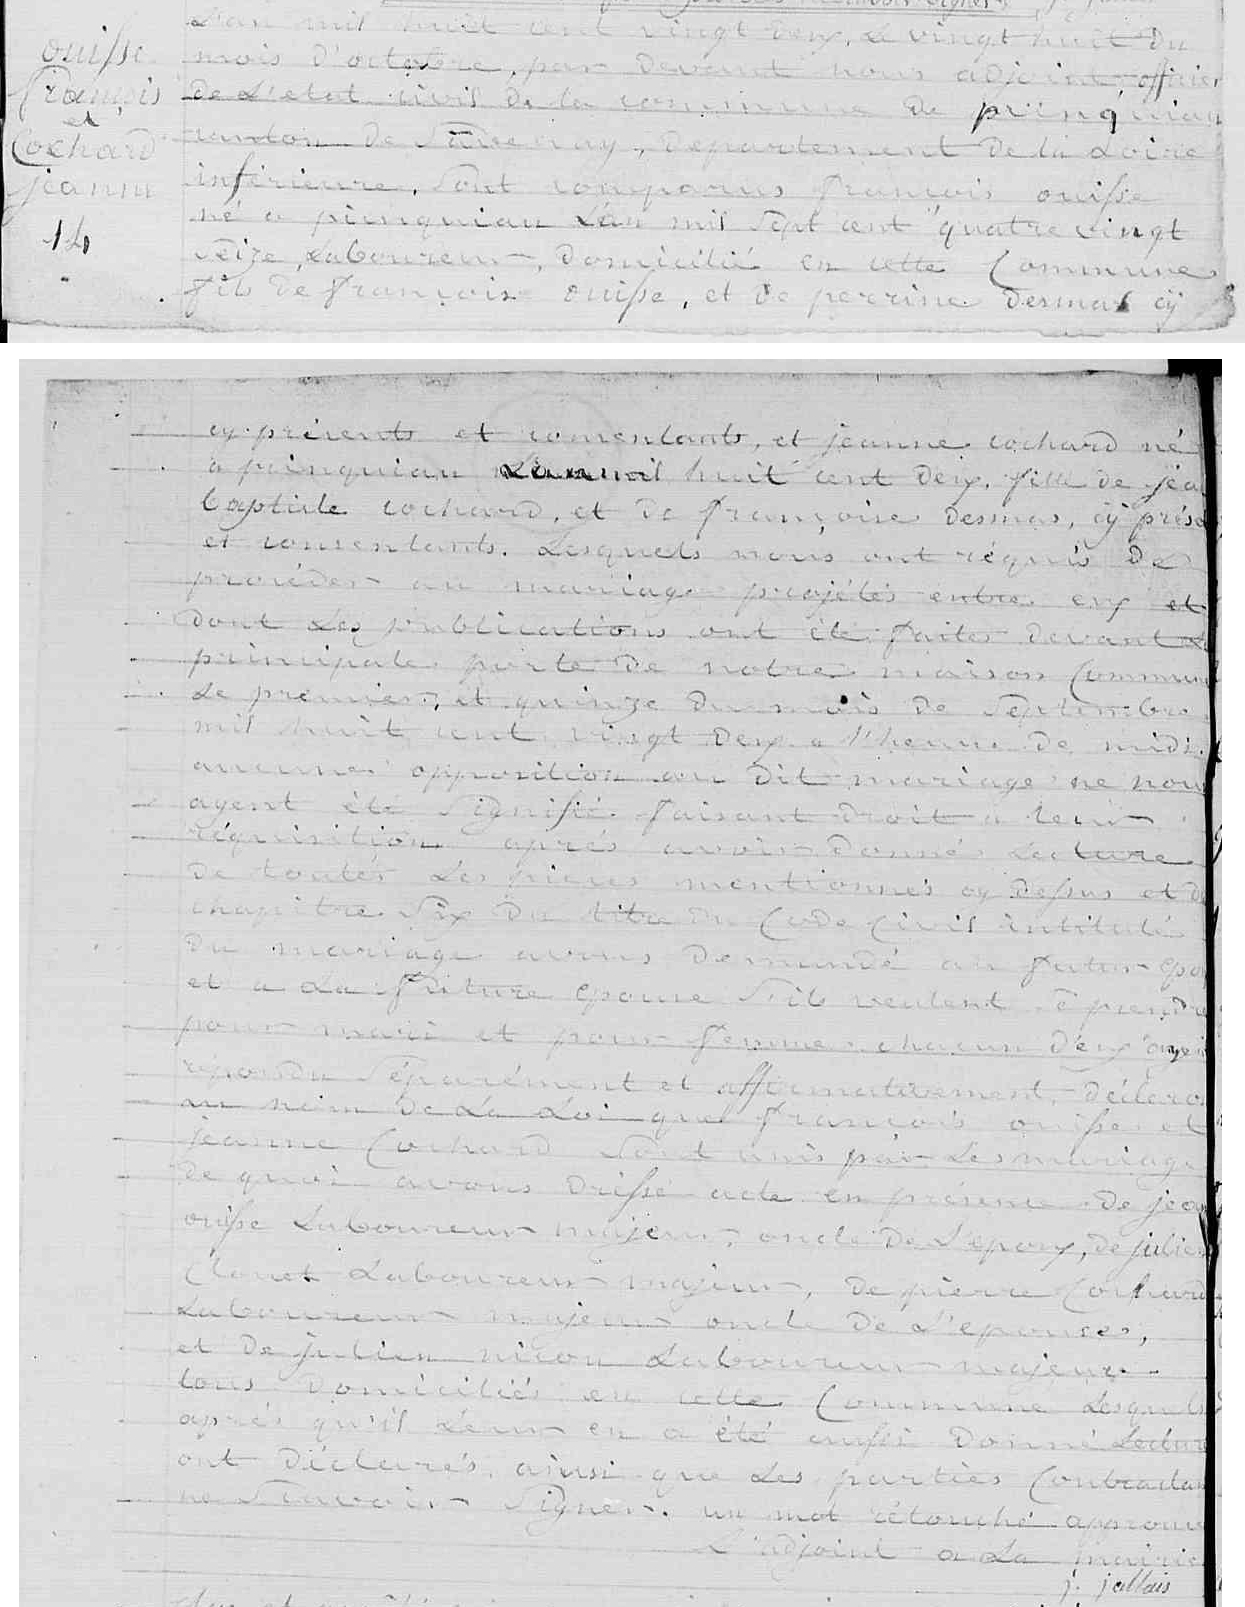 ouisse
françois
et
Cochard
jeanne
14
L'an mil huit cent vingt deux, Le vingt huit du
mois d'octobre, par devant nous adjoint officier
de L'etat civil de la commune de prinquiau
canton de Savenay, departement de la Loire
inférieure, Sont comparus françois ouisse
né a prinquiau L'an mil Sept cent quatre vingt
Seize, Laboureur, domicilié en cette Commune
fils de françois ouisse, et de perrine desmas cÿ
cy présents et consentants, et jeanne cochard né
a prinquiau L'an mil huit cent deux, fille de jea
baptiste cochard, et de françoise desmas, cÿ prése
et consentants. Lesquels nous ont réquis de
procéder au mariage projétés entre eux et
dont Les publications ont été faites devant La
principale porte de notre maison Commune
Le premier, et quinze du mois de Septembre
mil huit cent vingt deux a l'heure de midi.
aucune opposition au dit mariage ne nous
ayent été Signifié. faisant droit a leur
réquisition après avoir donnés Lecture
de toutes Les pieces mentionnés cy dessus et du
chapitre Six du titre du Code Civil intitulé
du mariage avons demandé au futur epou
et a La future epouse S'ils veulent Se prendre
pour mari et pour femme. chacun d'eux ayent
répondu Séparément et affirmativement, déclaro
au nom de La Loi que françois ouisse et
jeanne Cochard Sont unis par Les mariage
de quoi avons drissé acte en présence de jea
ouisse Laboureur majeur, oncle de L'epoux, de julien
Clouet Laboureur majeur, de pierre Cochard
Laboureur majeur oncle de L'epouses,
et de julien nicou Laboureur majeur.
tous domiciliés en cette Commune Lesquels
après qu'il Leur en a été aussi donné Lecture
ont déclarés, ainsi que Les parties Contractan
ne Sçavoir Signer. un mot rétouché approuv
L'adjoint a La mairie
j. jallais